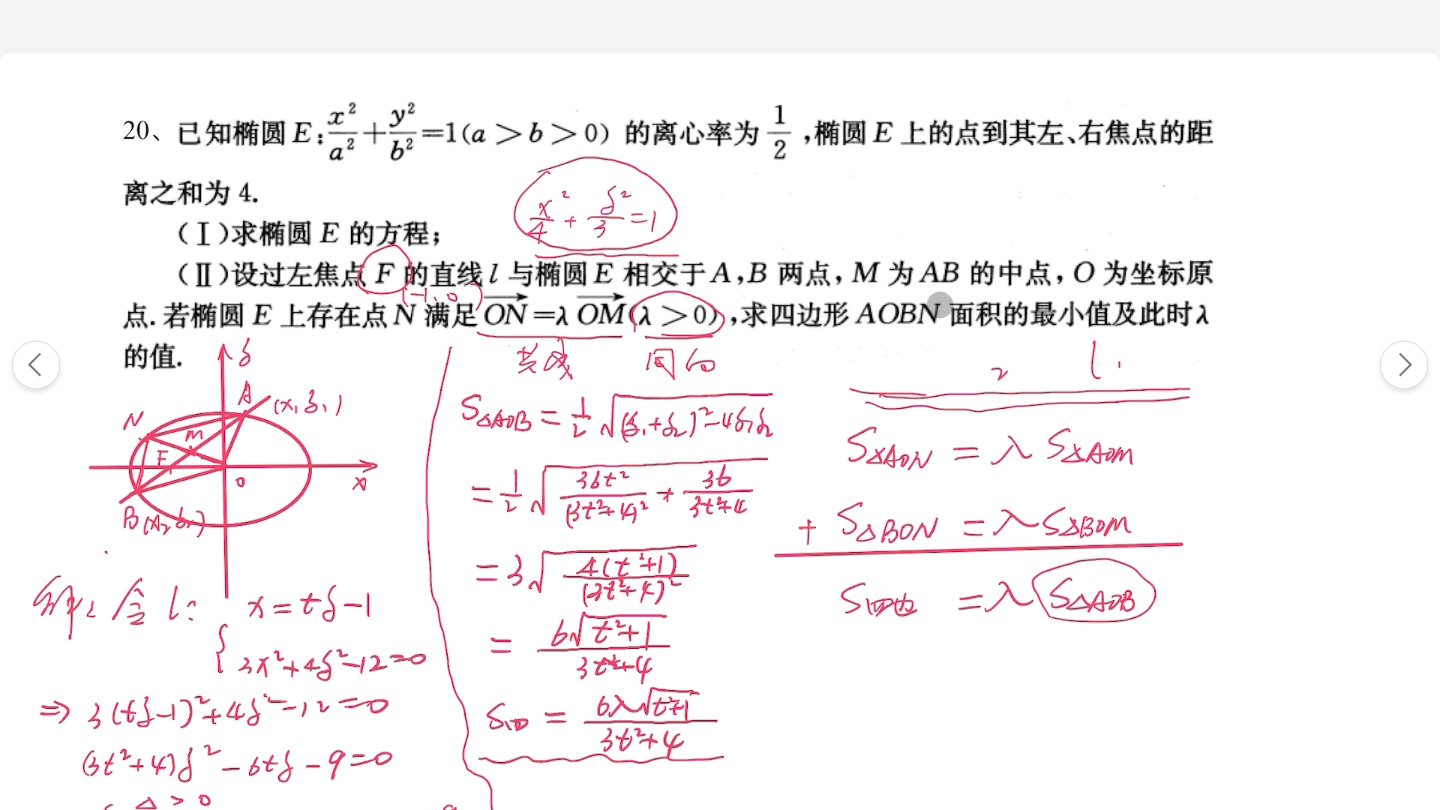 20、已知椭圆 E:x²/a²+y²/b²=1(a>b>0) 的离心率为 1/2 ,椭圆 E 上的点到其左、右焦点的距
离之和为 4.
x²/4+y²/3=1
(Ⅰ)求椭圆 E 的方程;
(Ⅱ)设过左焦点 F 的直线 l 与椭圆 E 相交于 A,B 两点, M 为 AB 的中点, O 为坐标原
(-1,0)
点. 若椭圆 E 上存在点 N 满足 ON=λ OM(λ>0) ,求四边形 AOBN 面积的最小值及此时 λ
的值.
共线 同向
y
A (x₁,y₁)
N
M
F
O
x
B(x₂,y₂)
解: 令 l: x=ty-1
3x²+4y²-12=0
⇒ 3(ty-1)²+4y²-12=0
(3t²+4)y²-6ty-9=0
△>0
S△AOB=1/2√((y₁+y₂)²-4y₁y₂)
=1/2√(36t²/(3t²+4)²+36/(3t²+4))
=3√(4(t²+1)/(3t²+4)²)
=6√(t²+1)/(3t²+4)
S四=6λ√(t²+1)/(3t²+4)
2 1.
S△AON=λS△AOM
+ S△BON=λS△BOM
S四边=λS△AOB